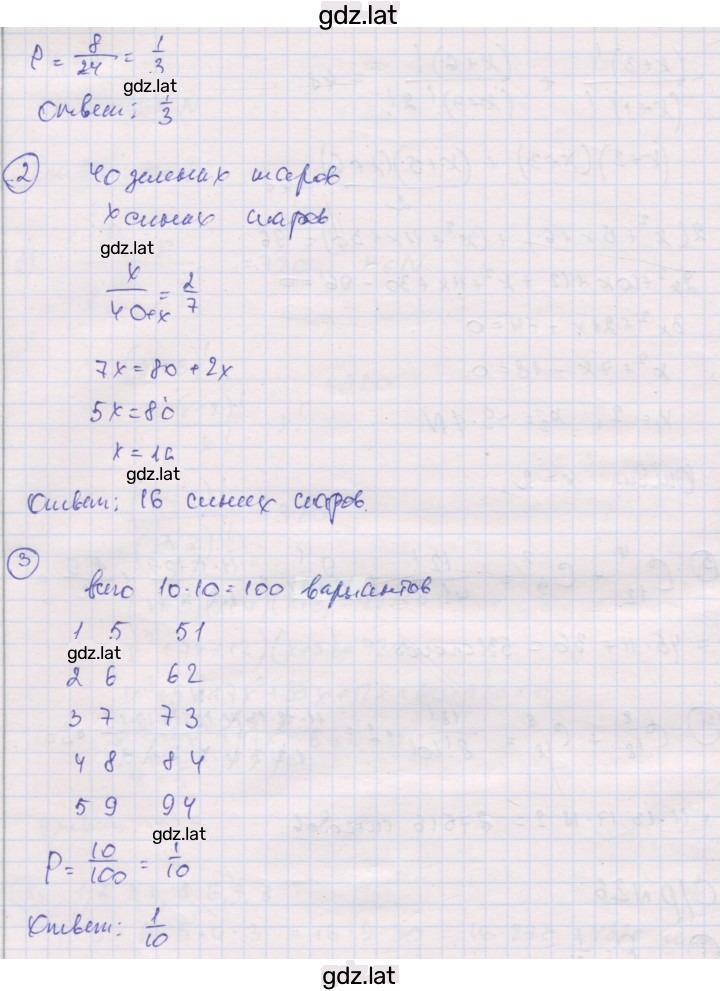 gdz.lat
P = 8/24 = 1/3
gdz.lat
Ответ: 1/3
2 40 зеленых шаров
x синих шаров
gdz.lat
x/(40+x) = 2/7
7x = 80 + 2x
5x = 80
x = 16
gdz.lat
Ответ: 16 синих шаров.
3
всего 10·10 = 100 вариантов
1 5 51
gdz.lat
2 6 62
3 7 73
4 8 84
5 9 94
gdz.lat
P = 10/100 = 1/10
Ответ: 1/10
gdz.lat